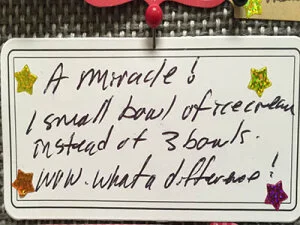 A miracle!
1 small bowl of icecream
instead of 3 bowls.
WOW. What a difference!